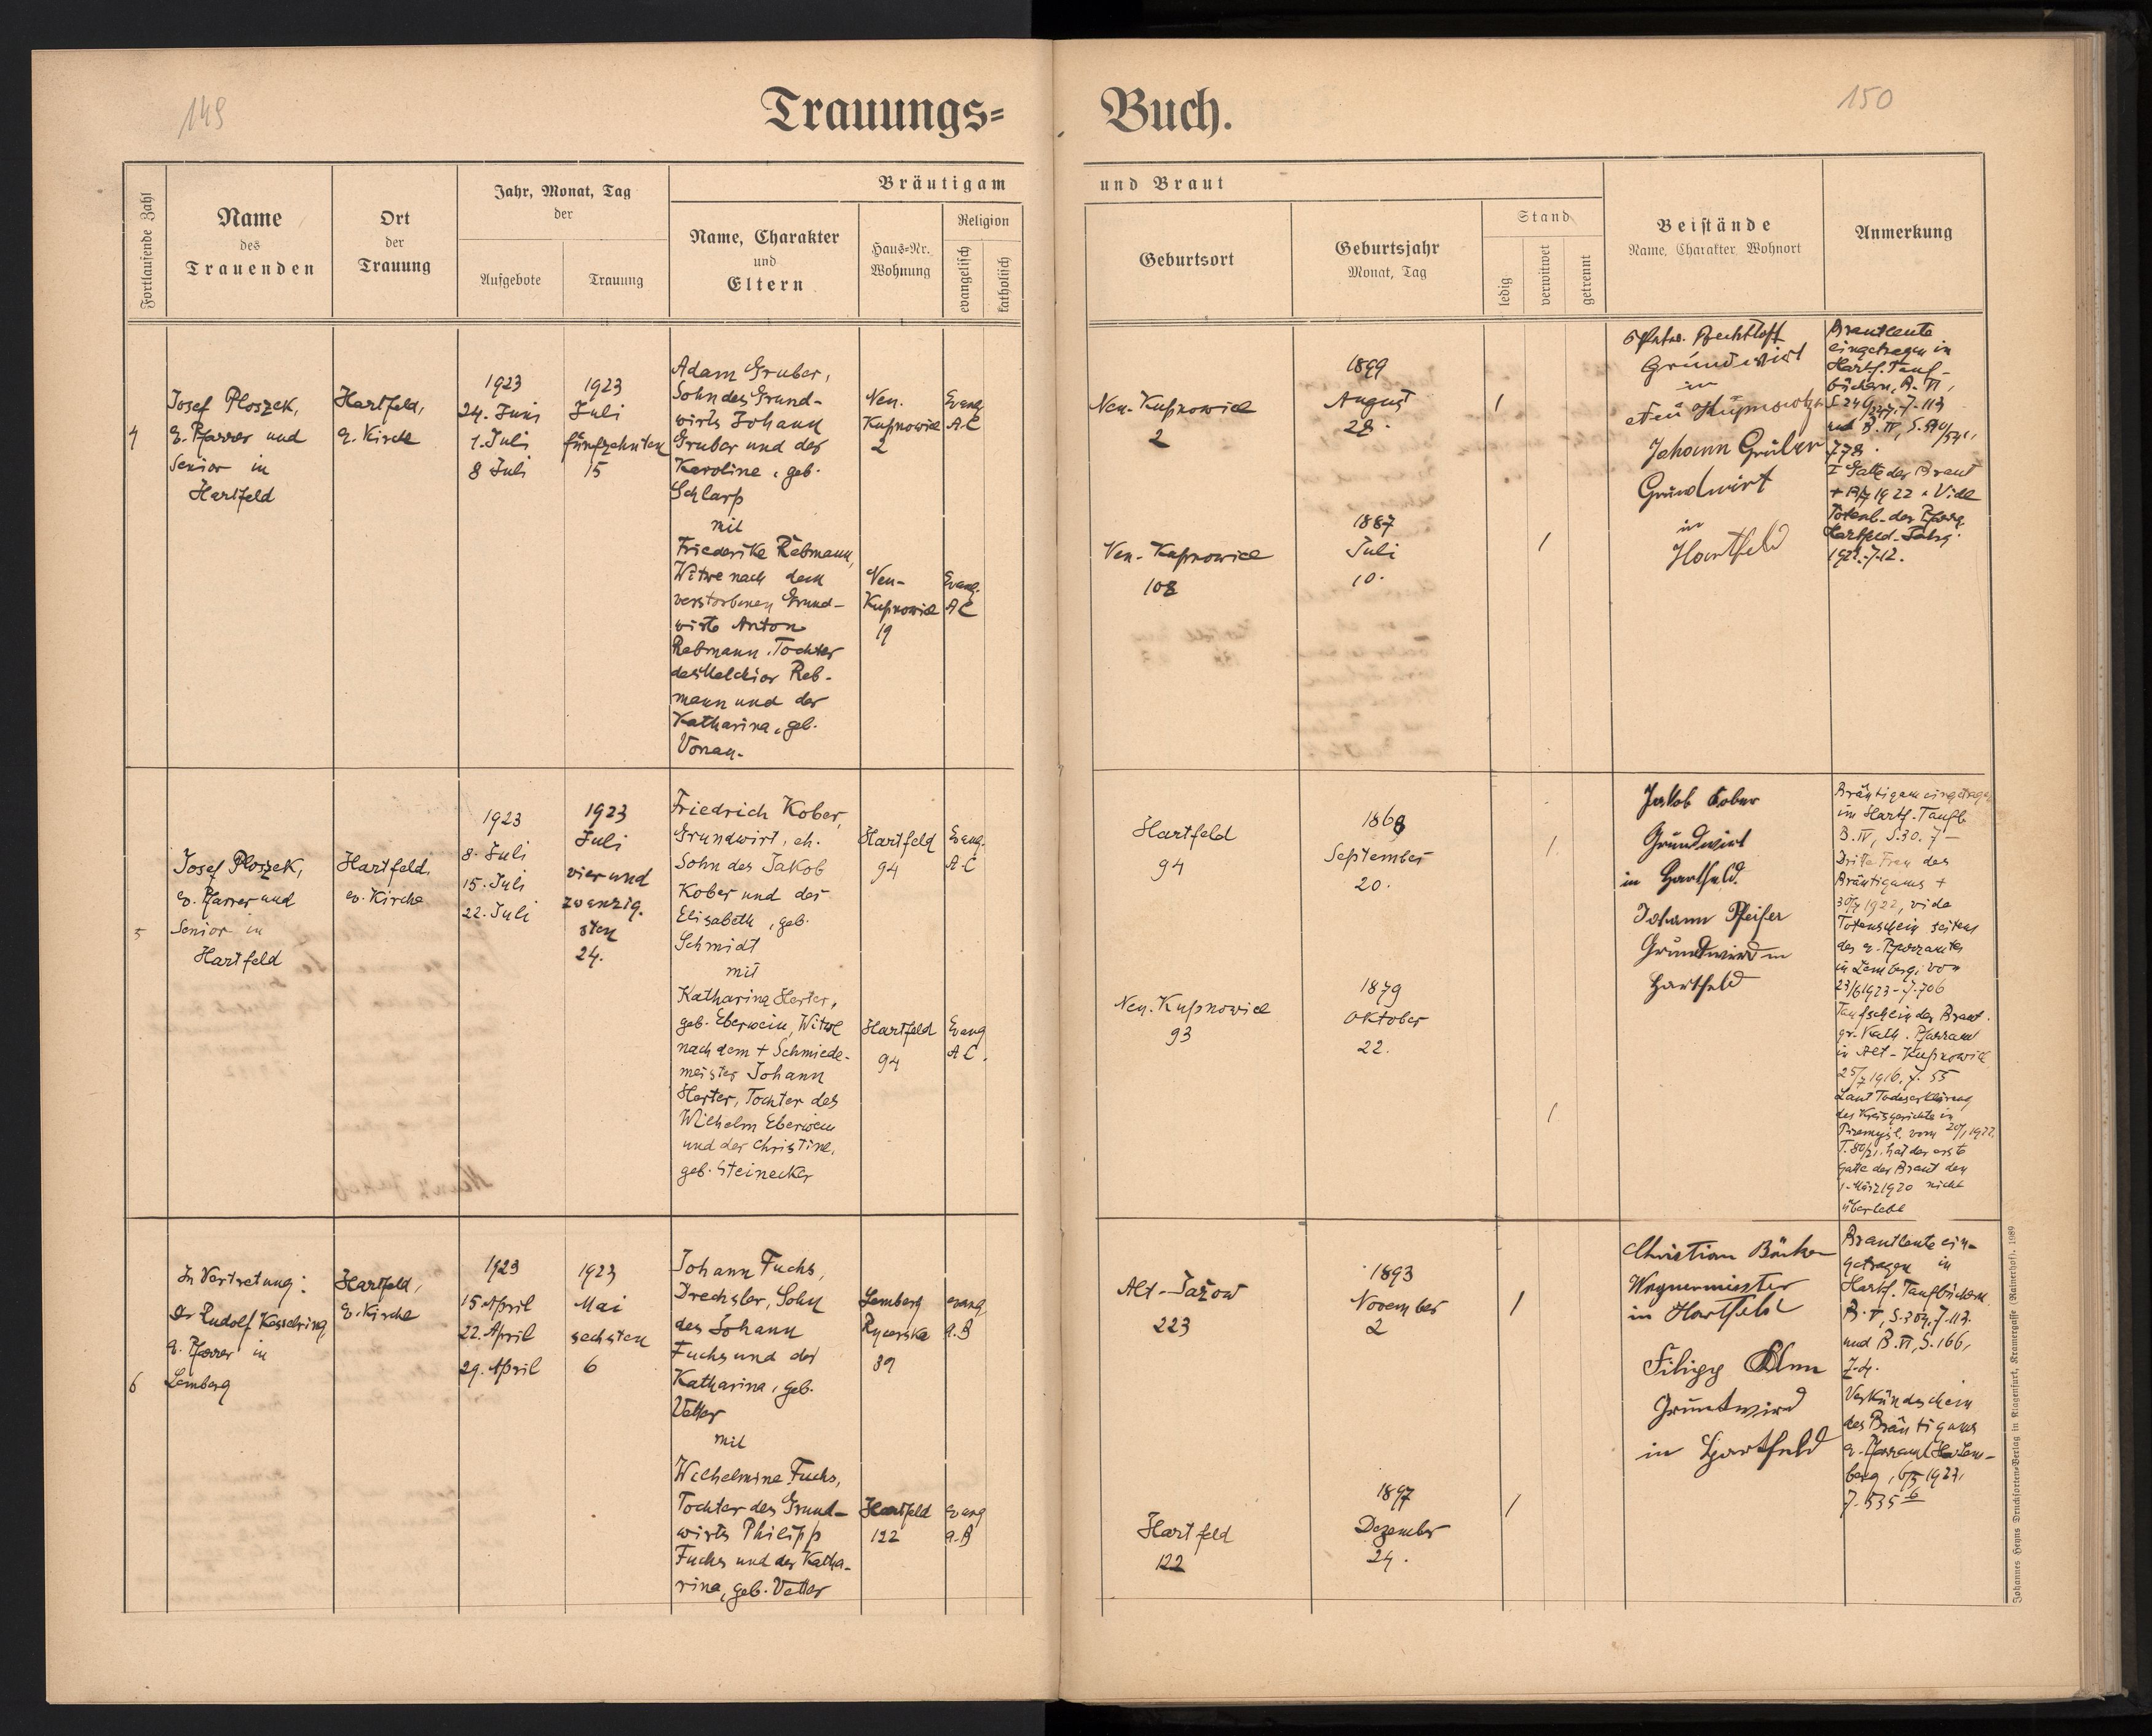 149
Trauungs=
Buch.
150
Fortlaufende Zahl
Name
des
Trauenden
Ort
der
Trauung
Jahr, Monat, Tag
der
Aufgebote
Trauung
Bräutigam
und Braut
Name, Charakter
und
Eltern
Haus=Nr.
Wohnung
Religion
evangelisch
katholisch
Geburtsort
Geburtsjahr
Monat, Tag
Stand
ledig
verwitwet
getrennt
Beistände
Name, Charakter, Wohnort
Anmerkung
4
Josef Ploszek,
e. Pfarrer und
Senior in
Hartfeld
Hartfeld,
e. Kirche
1923
24. Juni
1. Juli
8 Juli
1923
Juli
fünfzehnten
15
Adam Gruber,
Sohn des Grund-
wirts Johann
Gruber und der
Karoline, geb.
Schlarp
mit
Friederike Rebmann,
Witwe nach dem
verstorbenen Grund-
wirte Anton
Rebmann. Tochter
des Melchior Reb-
mann und der
Katharina, geb.
Vonau.
Neu-
Kupnowice
2
Evang
AC
Neu-
Kupnowice
19
Evang.
AC
Neu-Kupnowice
2
1899
August
28.
/
Neu-Kupnowice
108
1887
Juli
10.
/
Grundwirt
in
Johann Gruber
Grundwirt
in
Hartfeld
Brautleute
eingetragen in
Hartf. Tauf-
büchern, B. VI,
778.
I Gatte der Braut
1922. Vide
Totenb. der Pfarrg.
Hartfeld
5
Josef Ploszek,
ev. Pfarrer und
Senior in
Hartfeld
Hartfeld,
ev. Kirche
1923
8. Juli
15. Juli
22. Juli
1923
Juli
vier und
zwanzig-
sten
24.
Friedrich Kober,
Grundwirt, eh.
Sohn des Jakob
Kober und der
Elisabeth, geb.
Schmidt
mit
Katharina Herter,
geb. Eberwein, Witwe
nach dem + Schmiede-
meister Johann
Herter, Tochter des
Wilhelm Eberwein
und der Christine,
geb. Steinecker
Hartfeld
94
Evang.
AC
Hartfeld
94
Evang
AC.
Hartfeld
94
1868
September
20.
/
Neu-Kupnowice
93
1879
Oktober
22.
/
Jakob Kober
Grundwirt
in Hartfeld.
Johann Pfeifer
Grundwird in
Hartfeld
Bräutigam eingetragen
im Hartf. Taufb.
B. IV, S. 30. 7-
Dritte Frau des
Bräutigams +
30/7 1922, vide
Totenschein seitens
des e. Pfarramtes
in Lemberg, von
23/6 1923 - 7.706
Taufschein der Braut.
gr. Kath. Pfarramt
in Alt-Kupnowice
25/7 1916. 7. 55
Laut Todeserklärung
des Kreisgerichts in
Przemysl, vom
hat der erste
Gatte der Braut den
1. März 1920 nicht
überlebt
6
In Vertretung:
Dr Rudolf Kesselring
e. Pfarrer in
Lemberg
Hartfeld,
e. Kirche
1923
15 April
22. April
29. April
1923
Mai
sechsten
6
Johann Fuchs,
Drechsler, Sohn
des Johann
Fuchs und der
Katharina, geb.
Vetter
mit
Wilhelmine Fuchs,
Tochter des Grund-
wirts Philipp
Fuchs und der Katha-
rina, geb. Vetter
Lemberg
Rycerska
39
evang
A.B
Hartfeld
122
evang
A.B
Alt-Jazow
223
1893
November
2
/
Hartfeld
122
1897
Dezember
24.
/
Christian
Wagnermeister
in Hartfeld
Filipp
Gruntwird
in Hartfeld
Brautleute ein-
getragen in
Hartf. Taufbüchern
B. V, S. 304, 7.113.
und B. VI, S. 166,
7.4.
Verkündschein
des Bräutigams
e. Pfarramt Lem-
berg, 6/5 1923,
7. 535
Johannes Heyns Drucksorten=Verlag in Klagenfurt, Kramergasse (Rainerhof). 1089